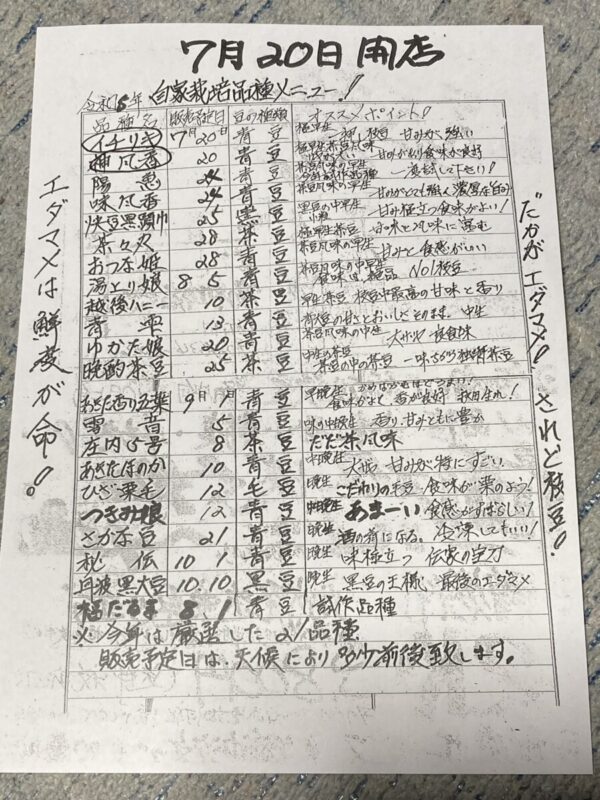 7月20日 開店
令和5年 自家栽培品種メニュー!
品種名 販売予定日 豆の種類 オススメポイント!
イチリキ 7月20日 青豆 極早生 一押し枝豆 甘みが強い
神風香 20 青豆 甘みがあり食味が良好
陽恵 24 青豆 一度試して下さい!
味風香 24 青豆 茶豆風味の早生 甘みがとても強く濃厚な
快豆黒頭巾 25 黒豆 黒豆の中早生 甘み極立つ食味がよい!
茶々丸 28 茶豆 極早生茶豆 甘味と風味に富む
おつな姫 28 青豆 茶豆風味の早生 甘みと食感がいい
湯上り娘 8 5 青豆 茶豆風味の中早生 食味は絶品 No1枝豆
越後ハニー 10 茶豆 早生茶豆 枝豆中最高の甘味と香り
青雫 13 青豆 青大豆の甘さとおいしさそのまま。中生
ゆかた娘 20 青豆 茶豆風味の中生 大サヤ 良食味
晩酌茶豆 25 茶豆 中生の茶豆 茶豆の中の茶豆 一味ちがう独特茶豆
あきた香り五葉 9月1日 青豆 食味がよく 香が良好 秋田生れ!
雪音 5 青豆 味の中晩生 香り、甘みともに豊か
庄内5号 8 茶豆 だだ茶風味
あきたほのか 10 青豆 中晩生 大サヤ 甘みが特にすごい
ひざ栗毛 12 毛豆 晩生 こだわりの毛豆 食味が栗のよう!
つきみ娘 12 青豆 中晩生 あまーい 食感がすばらしい!
さかな豆 21 青豆 晩生 酒の肴になる。冷凍してもいい!
秘伝 10 1 青豆 晩生 味極立つ 伝家の宝刀
丹波黒大豆 10.10 黒豆 晩生 黒豆の王様 最後のエダマメ
福だるま 8 1 青豆 試作品種
※今年は厳選した21品種
販売予定日は、天候により多少前後致します。
エダマメは鮮度が命!
"たかがエダマメ! されど枝豆!